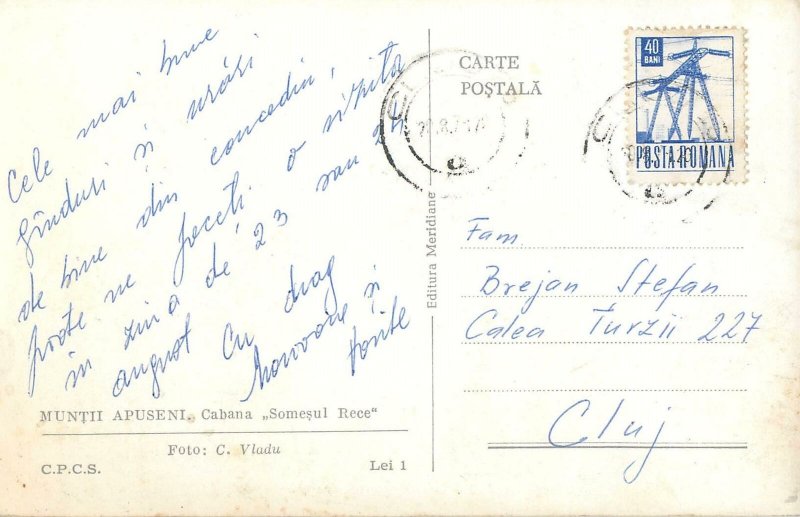 Cele mai bune
gînduri și urări
de bine din concediu,
poate ne faceți o vizită
în ziua de 23 sau 24
august Cu drag
și
CARTE
POȘTALĂ
40
BANI
POSTA ROMANA
Editura Meridiane
Fam.
Brejan Stefan
Calea Turzii 227
Cluj
MUNȚII APUSENI. Cabana „Someșul Rece"
Foto: C. Vladu
C.P.C.S. Lei 1